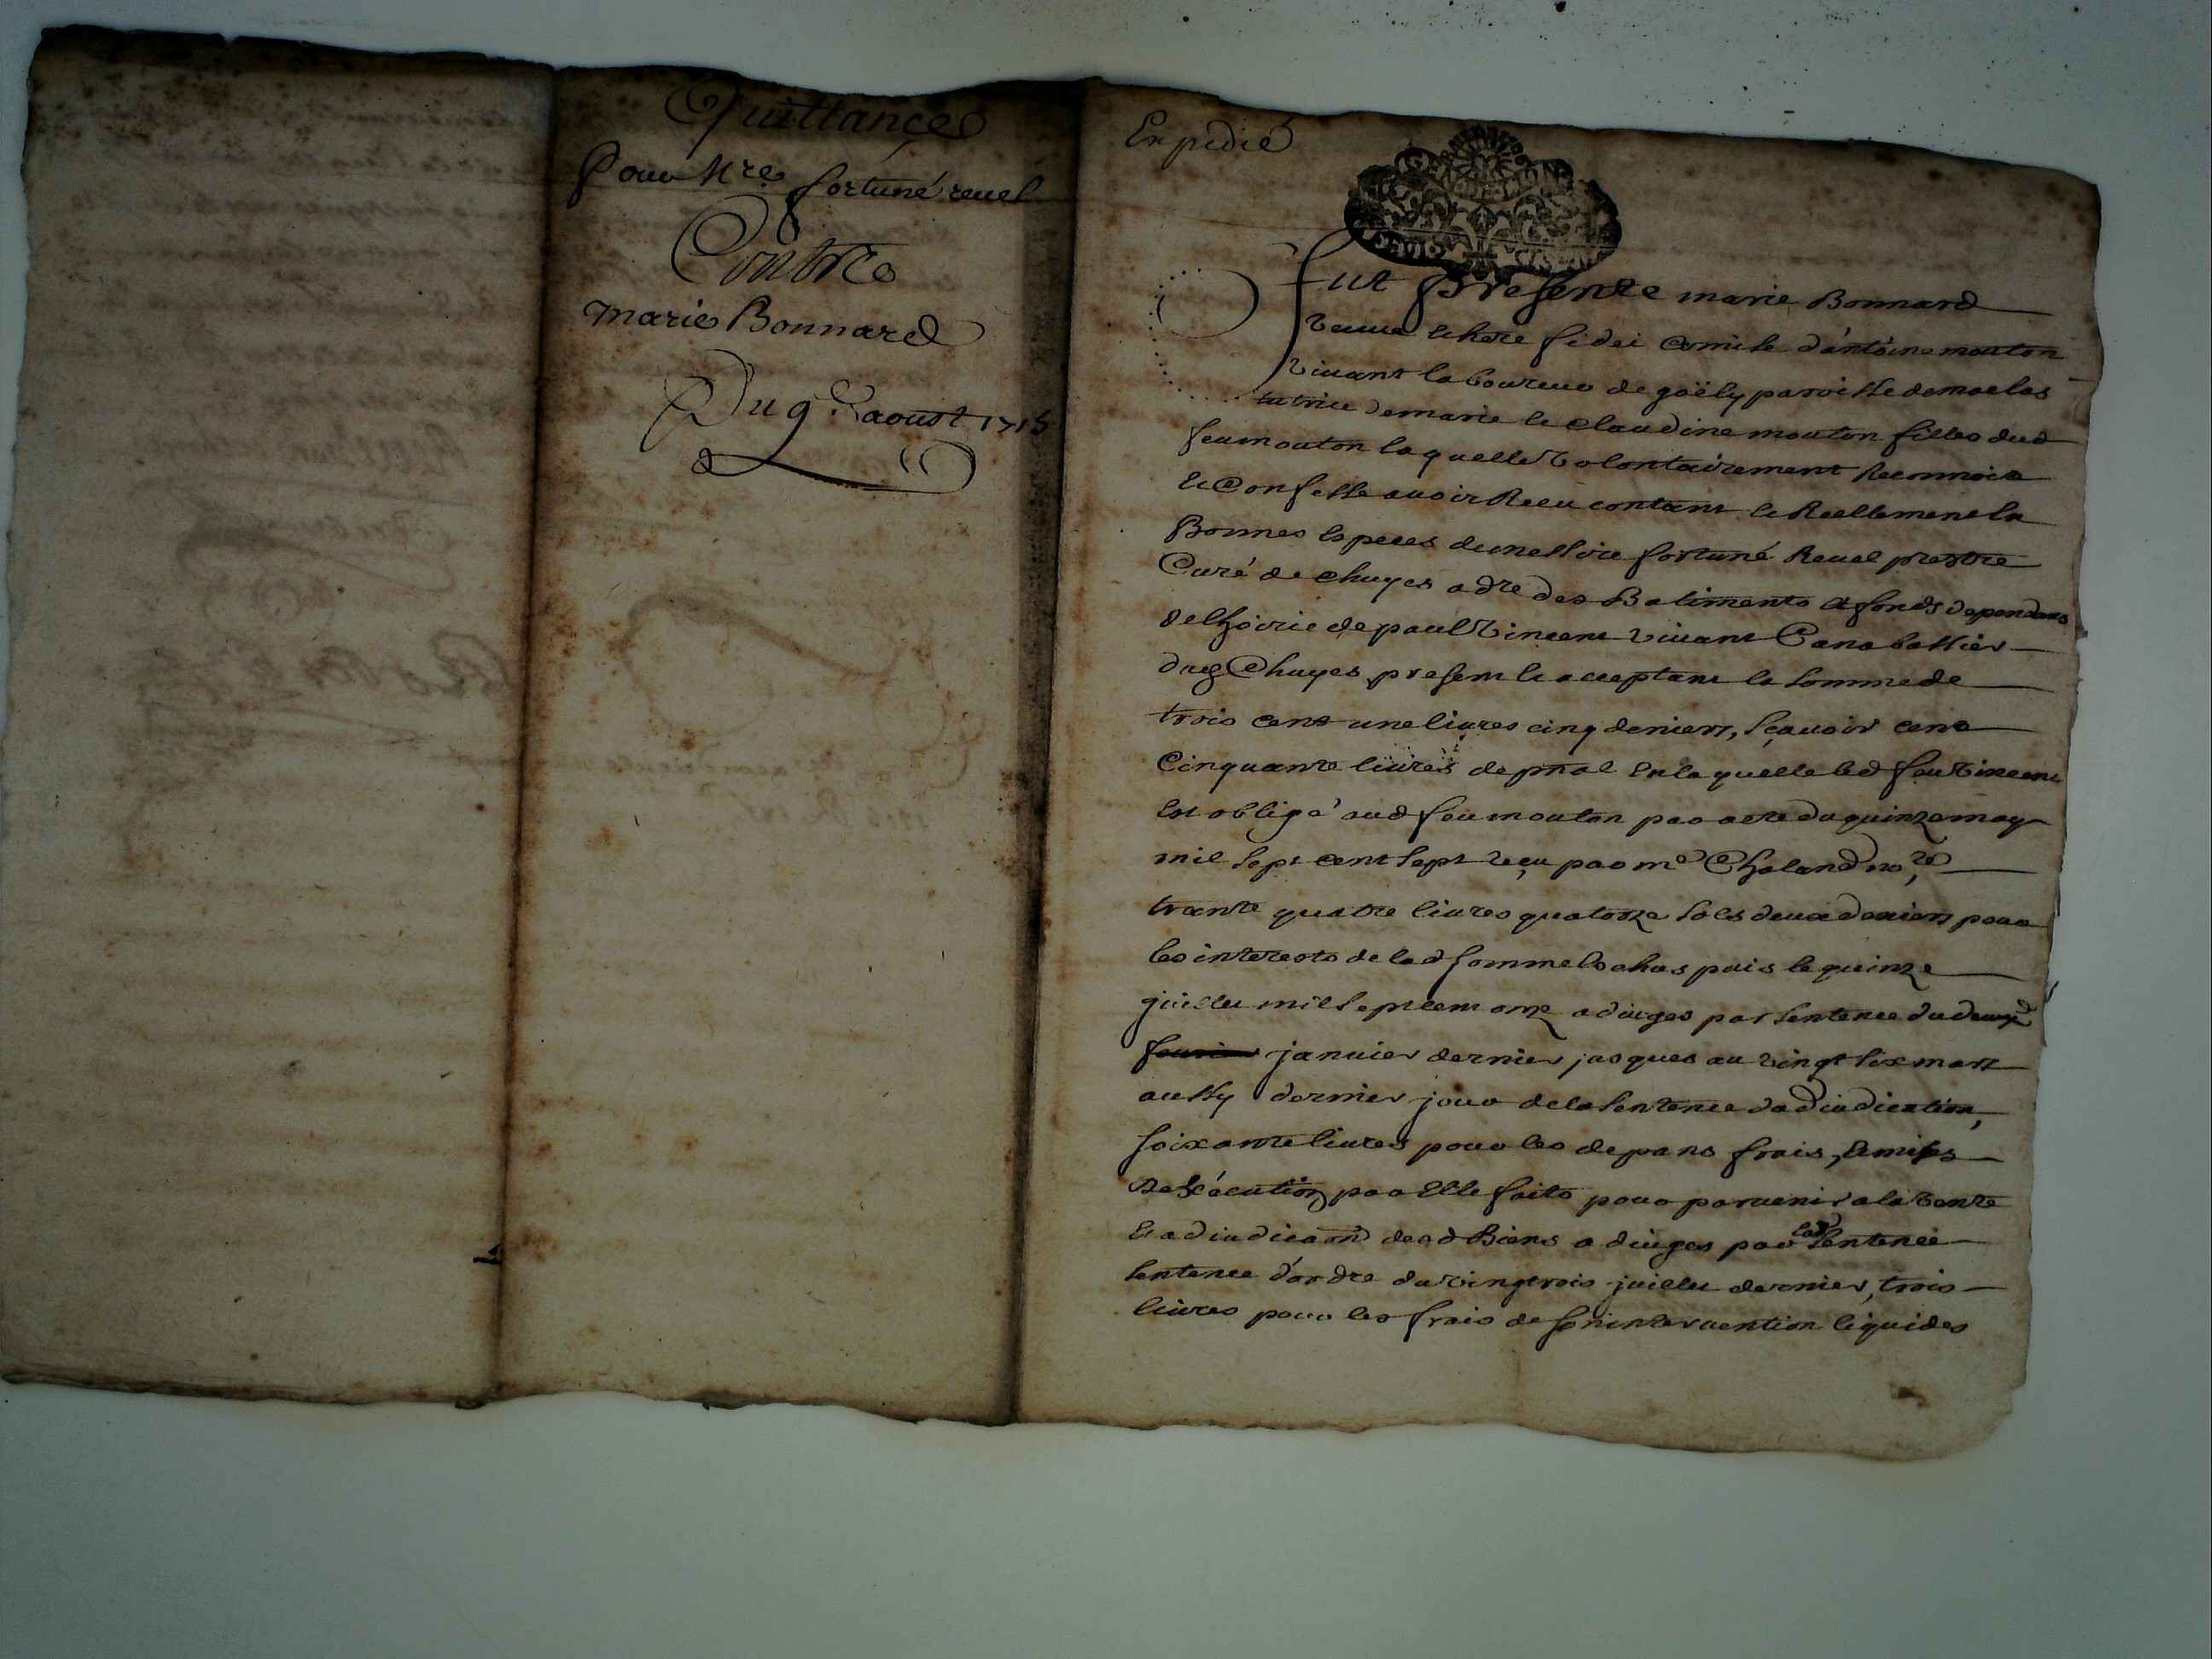 Quittance
Pour Mre fortuné reuel
Contre
marie Bonnard
Du 9e aoust 1715
Expedié
fut presente marie Bonnard
veuue & here fidei comise d'antoine mouton
viuant laboureur de goëly paroisse de maclas
tutrice de marie & claudine mouton filles dud
feu mouton laquelle volontairement Reconnois
& Confesse auoir Receu contant & Reellement En
Bonnes especes de messire fortuné Reuel prestre
Curé de chuyes adre des Batiments & fonds dependans
de lhoirie de paul vincent viuant Cabaretier
dud Chuyes present & acceptant la somme de
trois cent une liures cinq deniers, sçauoir cent
Cinquante liures de pnal En laquelle led feu vincent
Est obligé aud feu mouton par acte du quinze may
mil sept cent sept reçu par me Chaland nore
trante quatre liures quatorze sols deux deniers pour
les interests de lad somme Echus puis le quinze
juillet mil sept cent onze adiuges par sentence du
januier dernier jusques au vingt six mars
aussy dernier jour de la sentence dadiudication,
soixante liures pour les depans frais, & mises
dexécution par Elle faits pour paruenir a la vente
& adiudicaon desd Biens adiuges par lad sentence
sentence d'ordre du vingtrois juillet dernier, trois
liures pour les frais de son interuention liquides